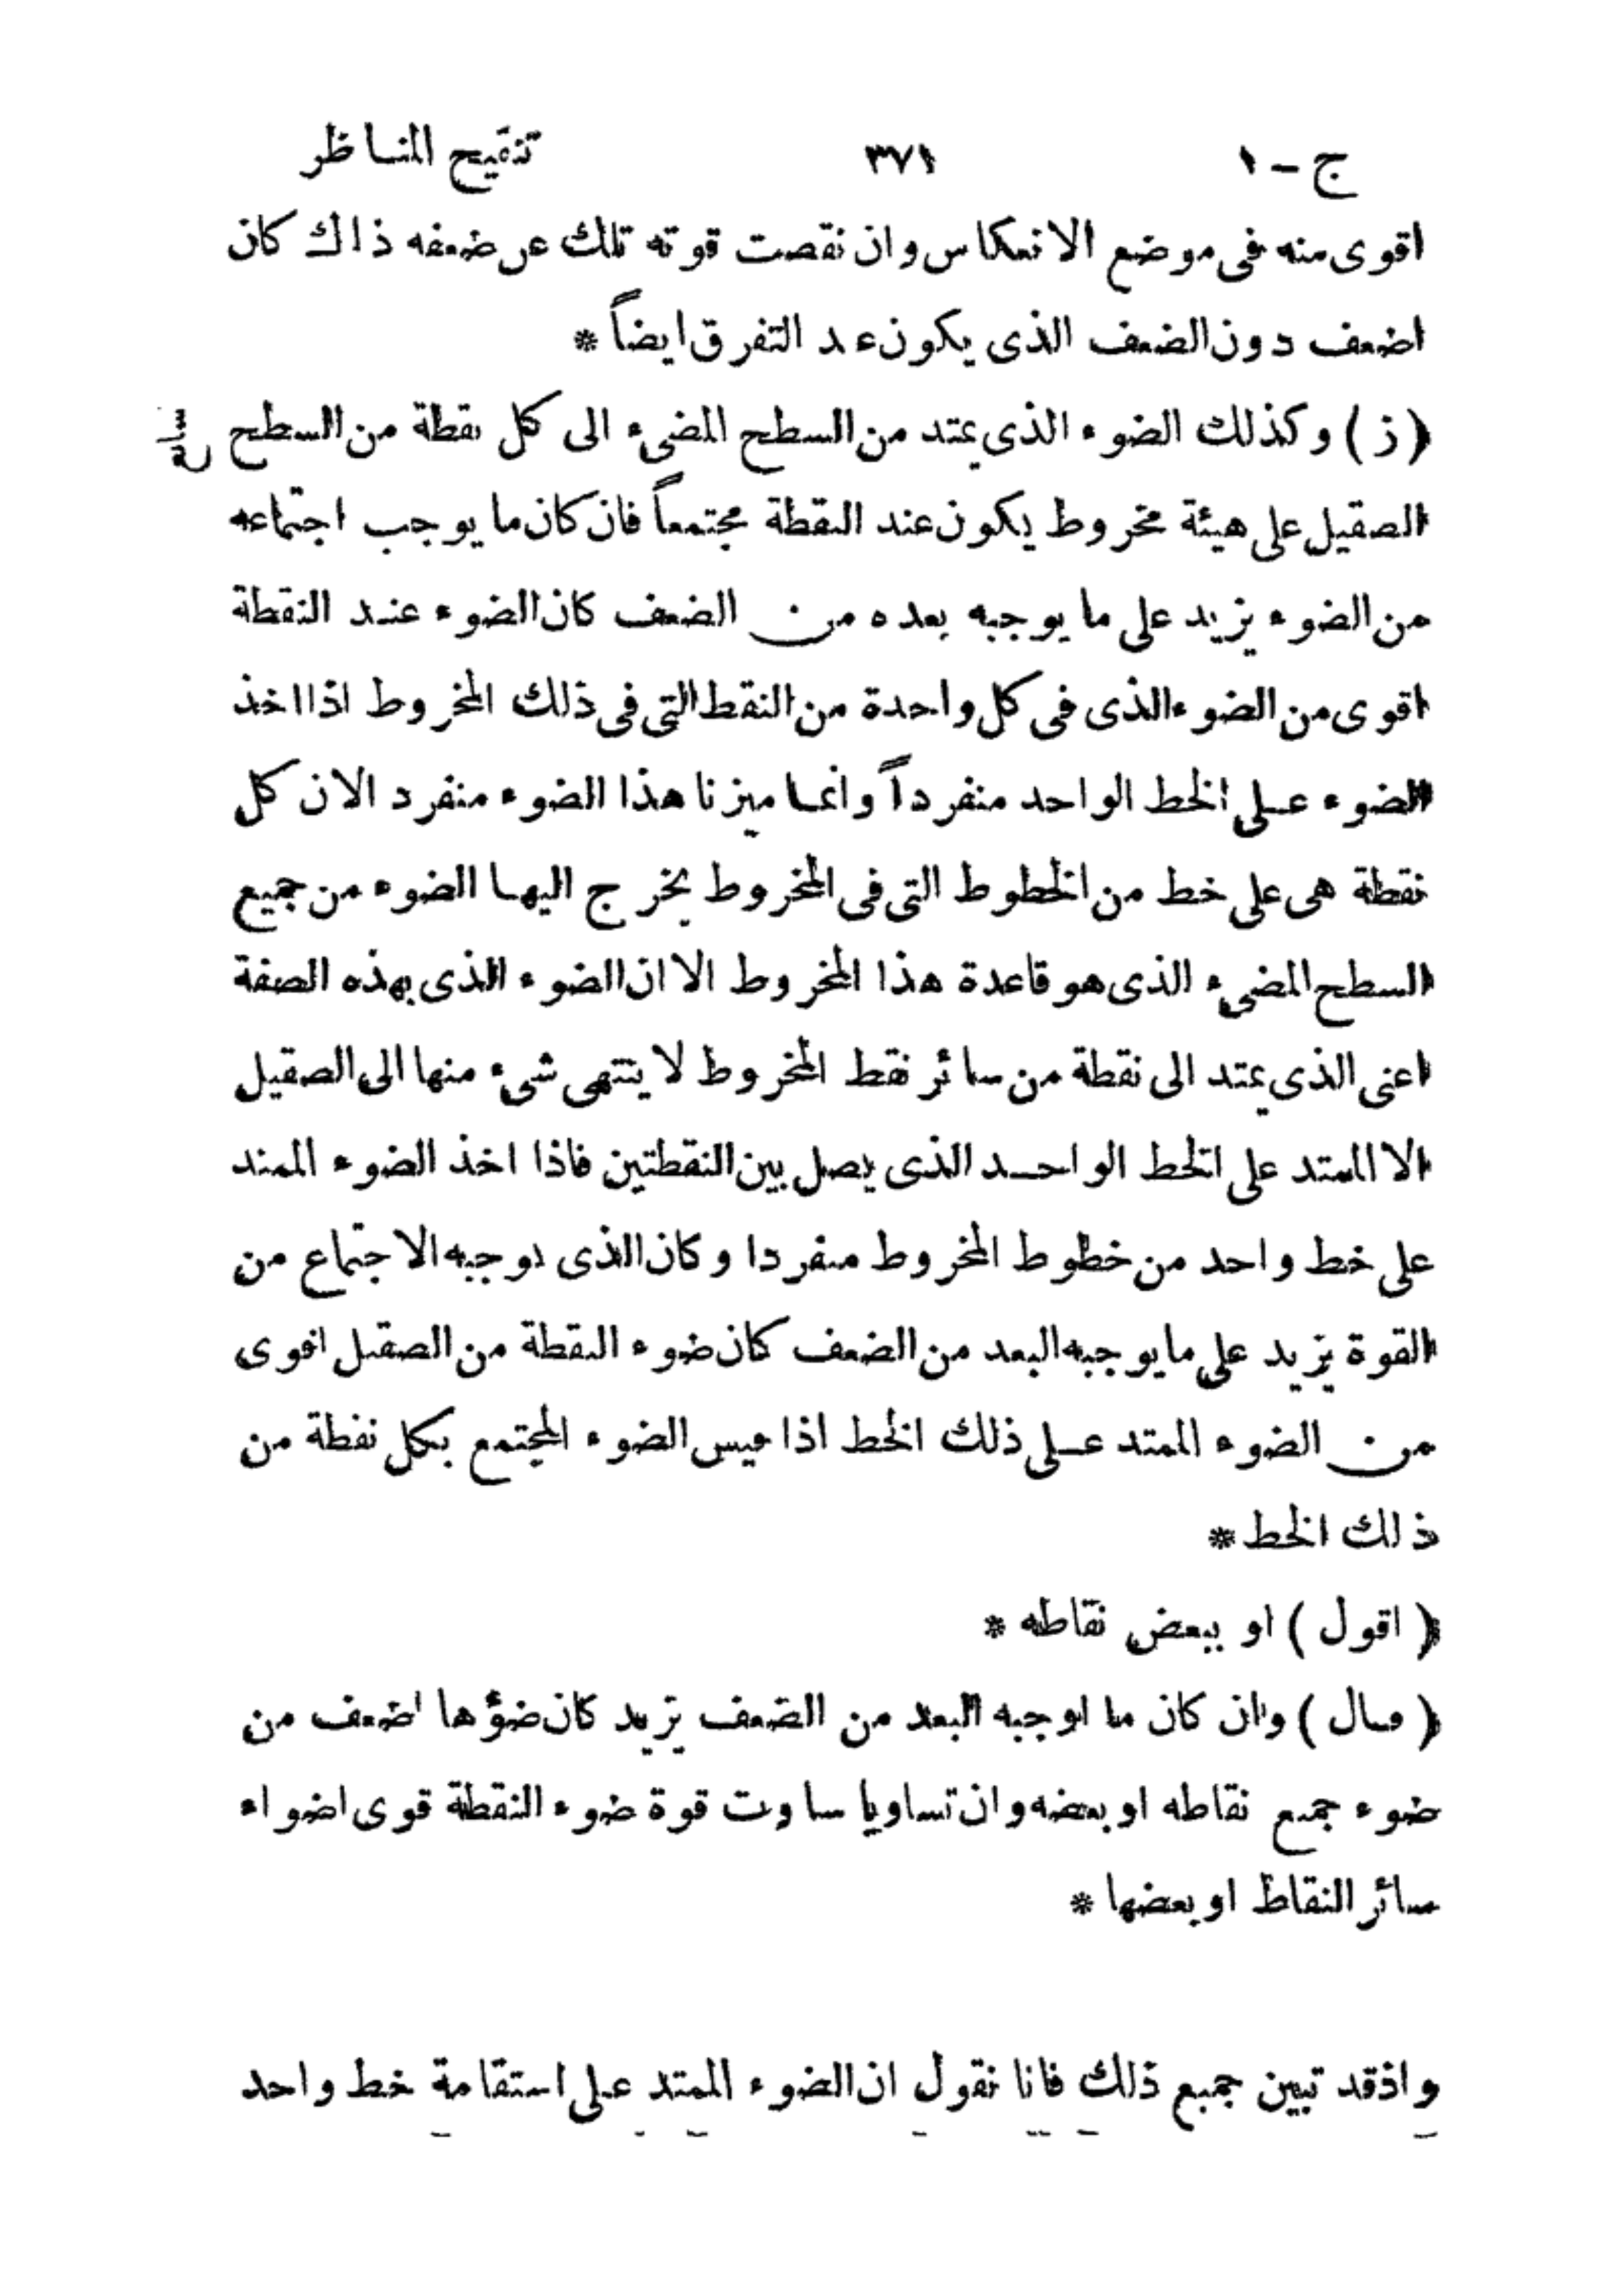 ج - ١ ٣٧١ تنقيح المناظر
اقوى منه فى موضع الانعكاس وان نقصت قوته تلك عن ضعفه ذاك كان
اضعف دون الضعف الذى يكون عند التفرق ايضاً *
(ز) وكذلك الضوء الذى يمتد من السطح المضىء الى كل نقطة من السطح
الصقيل على هيئة مخروط يكون عند النقطة مجتمعاً فان كان ما يوجب اجتماعه
من الضوء يزيد على ما يوجبه بعده من الضعف كان الضوء عند النقطة
اقوى من الضوء الذى فى كل واحدة من النقط التى فى ذلك المخروط اذا اخذ
الضوء على الخط الواحد منفرداً وانما ميزنا هذا الضوء منفرد الان كل
نقطة هى على خط من الخطوط التى فى المخروط يخرج اليها الضوء من جميع
السطح المضىء الذى هو قاعدة هذا المخروط الا ان الضوء الذى بهذه الصفة
اعنى الذى يمتد الى نقطة من سائر نقط المخروط لا ينتهى شىء منها الى الصقيل
الا الممتد على الخط الواحد الذى يصل بين النقطتين فاذا اخذ الضوء الممتد
على خط واحد من خطوط المخروط منفردا وكان الذى يوجبه الاجتماع من
القوة يزيد على ما يوجبه البعد من الضعف كان ضوء النقطة من الصقيل اقوى
من الضوء الممتد على ذلك الخط اذا قيس الضوء المجتمع بكل نقطة من
ذلك الخط *
(اقول) او ببعض نقاطه *
(قال) وان كان ما اوجبه البعد من الضعف يزيد كان ضؤها اضعف من
ضوء جميع نقاطه او بعضه وان تساويا ساوت قوة ضوء النقطة قوى اضواء
سائر النقاط او بعضها *
واذ قد تبين جميع ذلك فانا نقول ان الضوء الممتد على استقامة خط واحد